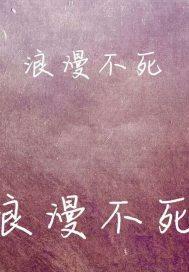 浪漫不死
浪漫不死